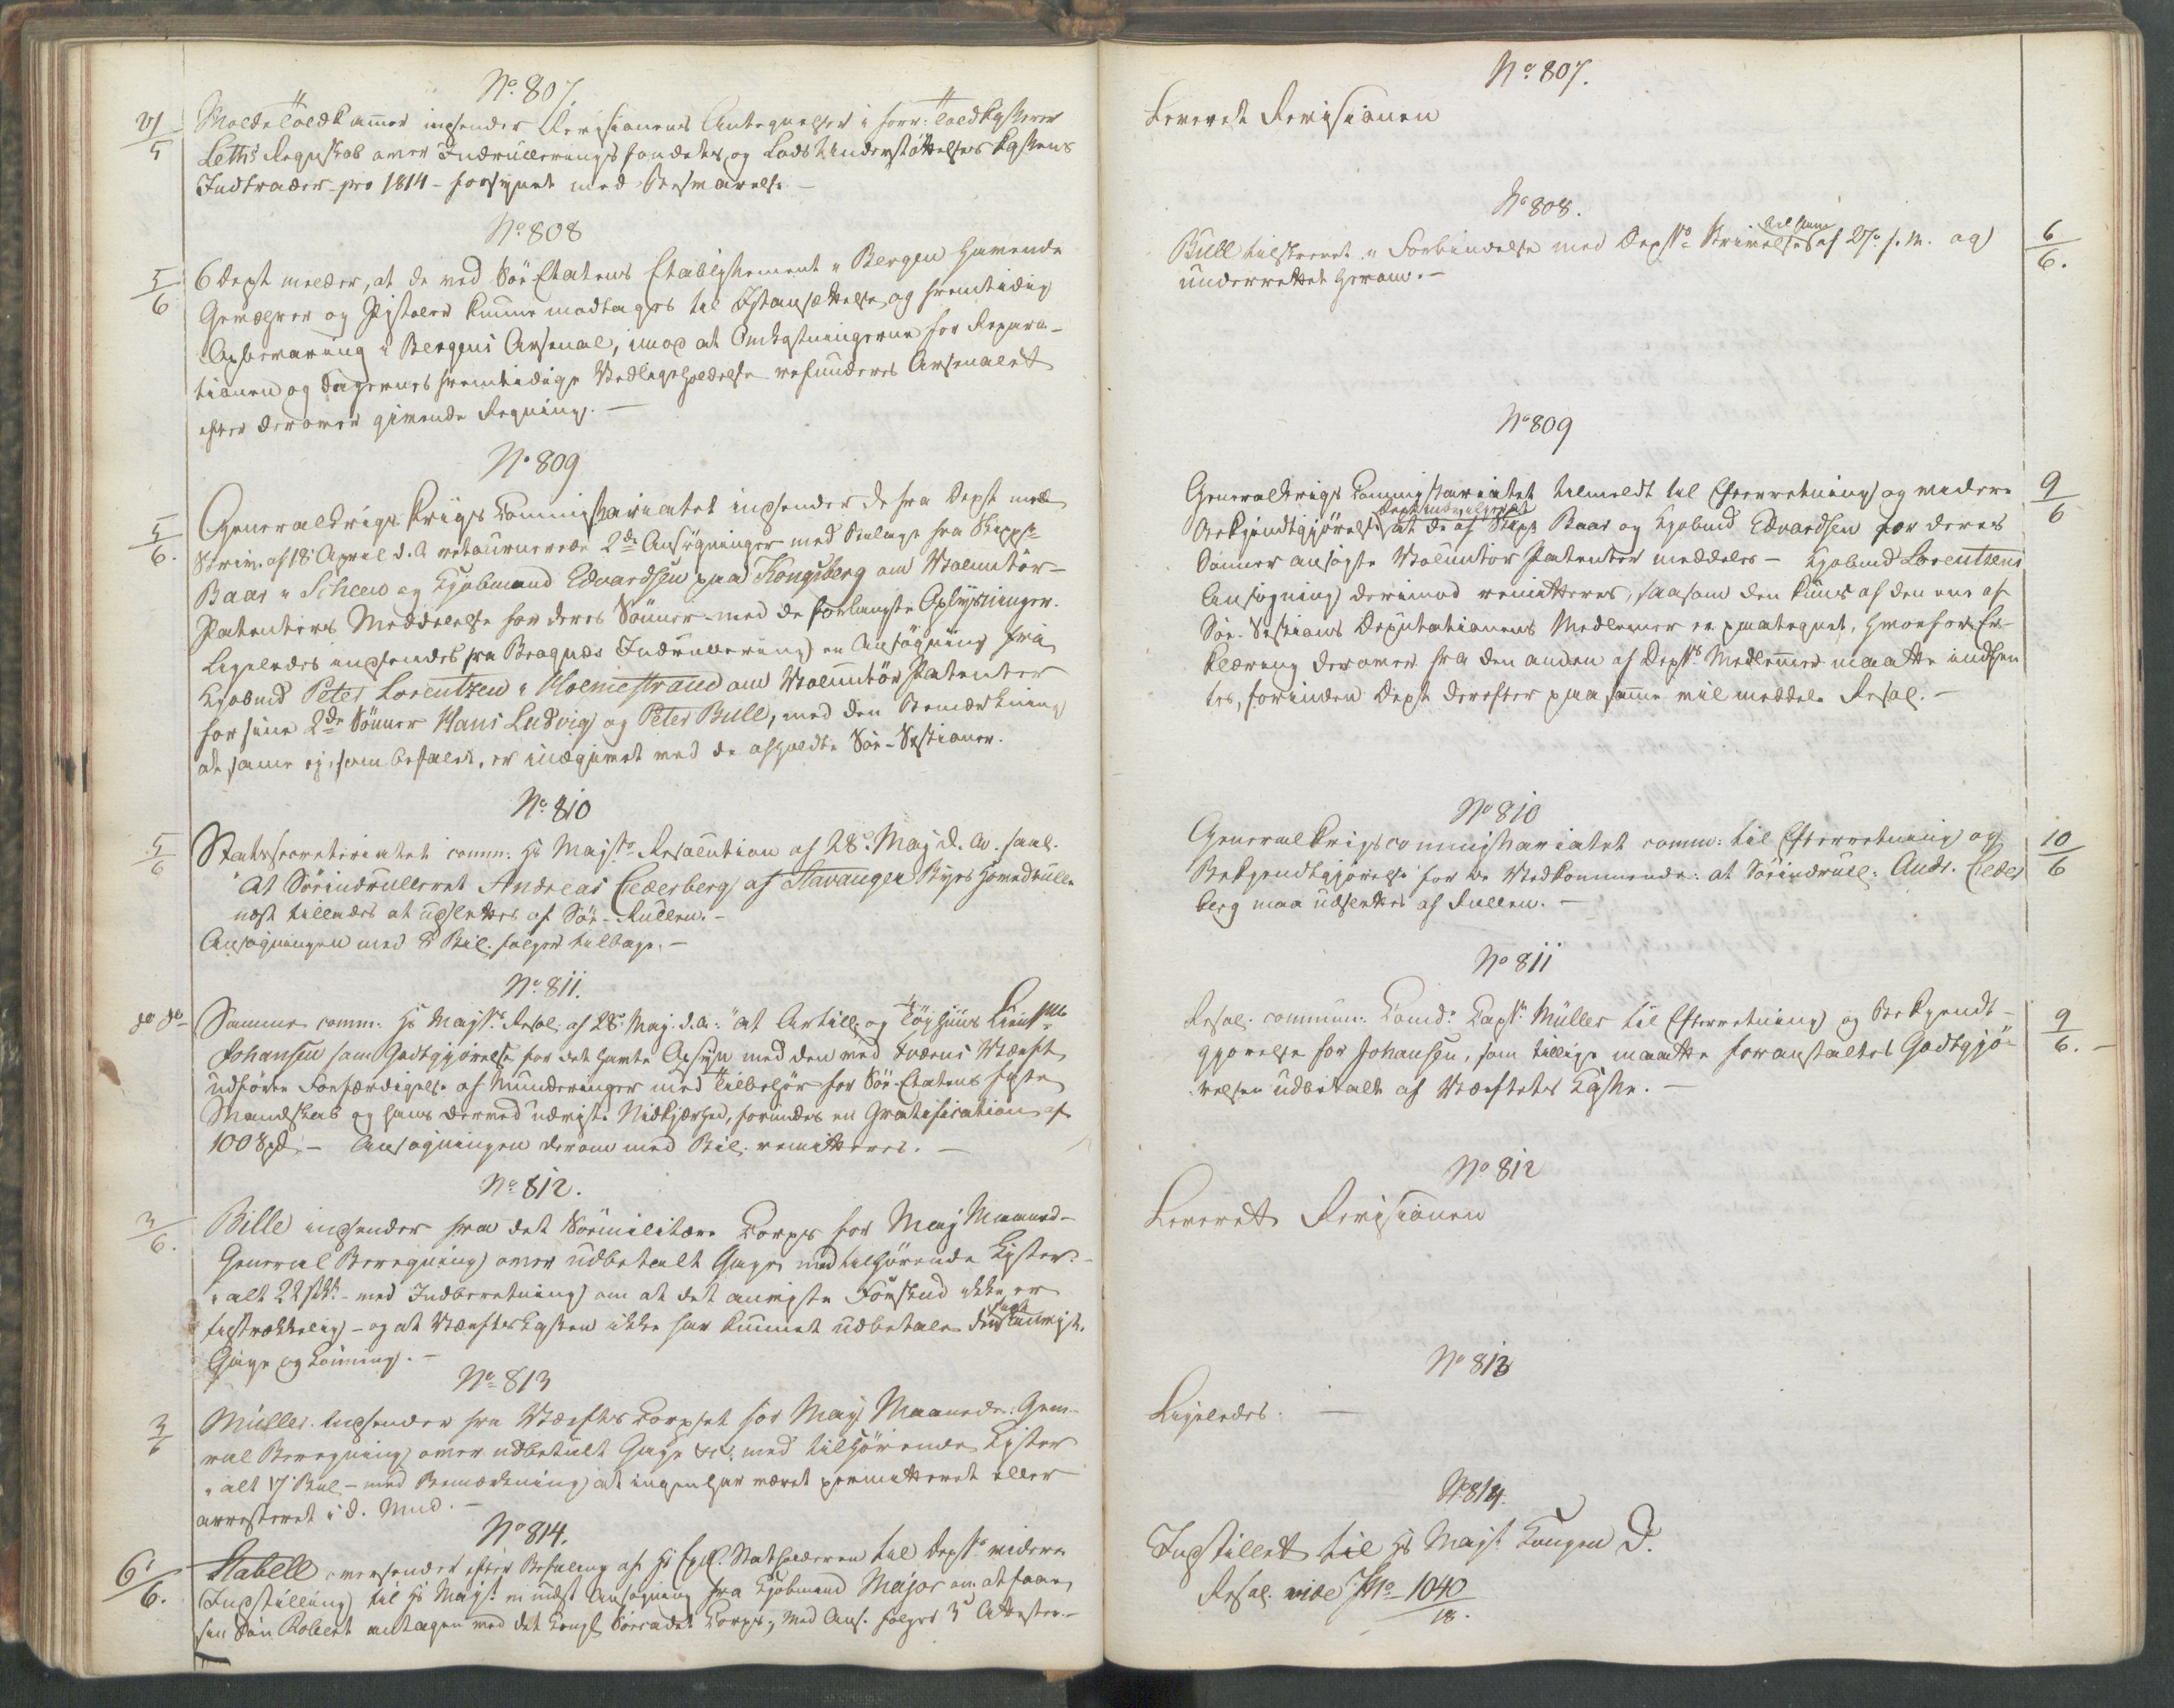 No 807.
21/5
Molde Toldkammer indsender Revisionens Antegnelser i forr: Toldkasserer
Leths Regnskab over Indrulleringsfondets og Lods Understøttelses Kassens
Indtrader pro 1814 - forsynet med Besvarelse -
No 808
5/6
6 Dept melder, at de ved Söe Etatens Etablissement i Bergen havende
Geværer og Pistoler kunne modtages til Istandsættelse og fremtidig
Opbevaring i Bergens Arsenal, imod at Omkostningerne for Repara-
tionen og Sagernes fremtidige Vedligeholdelse refunderes Arsenalet
efter derover givende Regning. -
No 809
5/6.
Generalkrigs Krigs Commissariatet indsender de fra Dept med
Skriv. af 18 April d. A. retournerede 2de Ansøgninger med Bilage fra Skipp
Baar i Scheen og Kjøbmand Edvardsen paa Kongsberg om Voluntör-
Patenters Meddelelse for deres Sönner - med de forlangte Oplysninger.
Ligeledes indsendes fra Bragnæs Indrullering en Ansögning fra
Kjøbmd Peter Lorentzen i Holmestrand om Voluntör Patenter
for sine 2de Sönner Hans Ludvig og Peter Bull, med den Bemærkning
at samme ej, som befalet, er indgivet ved de afholdte Söe-Sessioner.
No 810
5/6
Statssecretariatet comm. Hs Majsts Resolution af 28 Maj d. A. saal.
"At Söeindrulleret Andreas Cederberg af Stavanger Byes Hovedrulle
maa tillades at udslettes af Söe-Rullen. -
Ansøgningen med 8 Bil. følger tilbage. -
No 811.
do do
Samme comm. Hs Majsts Resol. af 28 Maj. d. A. "at Artill. og Töyhuus Lieut
Johansen som Godtgjörelse for det havte Opsyn med den ved Horens Værft
udförte Forfærdigelse af Munderinger med Tilbehör for Söe-Etatens faste
Mandskab og hans derved udviste Nidkjærhed, forundes en Gratification af
100 Spd. - Ansøgningen derom med Bil. remitteres. -
No 812.
3/6.
Bille indsender fra det Söemilitære Corps for Maj Maaned -
General Beregning over udbetalt Gage med tilhörende Lister -
i alt 22 stkr - med Indberetning om at det anviste Forskud ikke er
tilstrækkelig - og at Værftskassen ikke har kunnet udbetale den anviste
Gage og Lönning. -
No 813
3/6
Müller indsender fra Værfts Corpset for Maj Maaned: Gene-
ral Beregning over udbetalt Gage &c. med tilhörende Lister
i alt 17 Bil - med Bemærkning at ingen har været permitteret eller
arresteret i d. Mnd. -
No 814.
6/6.
Stabell oversender efter Befaling af Hs Exell. Statholderen til Depts videre
Indstilling til Hs Majst en indst Ansøgning fra Kjøbmand Major om at faae
sin Sön Robert antagen ved det Kongl Söecadet Corps; med Ans. følger 3 Attester. -
No 807.
Leveret Revisionen
No 808.
Bull tilskrevet i Forbindelse med Depts Skrivelse af 27 f. M. og
underrettet herom. -
6/6.
No 809
Generalkrigs Commissariatet tilmeldt til Efterretning og videre
Bekjendtgjörelse at de af Skipp Baar og Kjøbmd Edvardsen for deres
Sönner ansøgte Voluntör Patenter meddeles - Kjøbmd Lorentzens
Ansøgning derimod remitteres, saasom den kuns af den ene af
Söe-Sessions Deputationens Medlemer er paategnet, hvorfor Er-
klæring derover fra den anden af Depts Medlemmer maatte indhen
tes, forinden Dept derefter paa samme vil meddele Resol. -
9/6
No 810
Generalkrigscommissariatet comm: til Efterretning og
Bekjendtgjörelse for de Vedkommende: at Söeindrull: Andr. Ceder
berg maa udslettes af Rullen. -
10/6
No 811
Resol. commun. Comd. Capt Müller til Efterretning og Bekjendt-
gjörelse for Johansen, som tillige maatte foranstaltes Godtgjö-
relsen udbetalt af Værftets Casse. -
9/6. -
No 812
Leveret Revisionen
No 813
Ligeledes. -
No 814.
Indstillet til Hs Majst Kongen D.
Resol. vide No 1040/18.